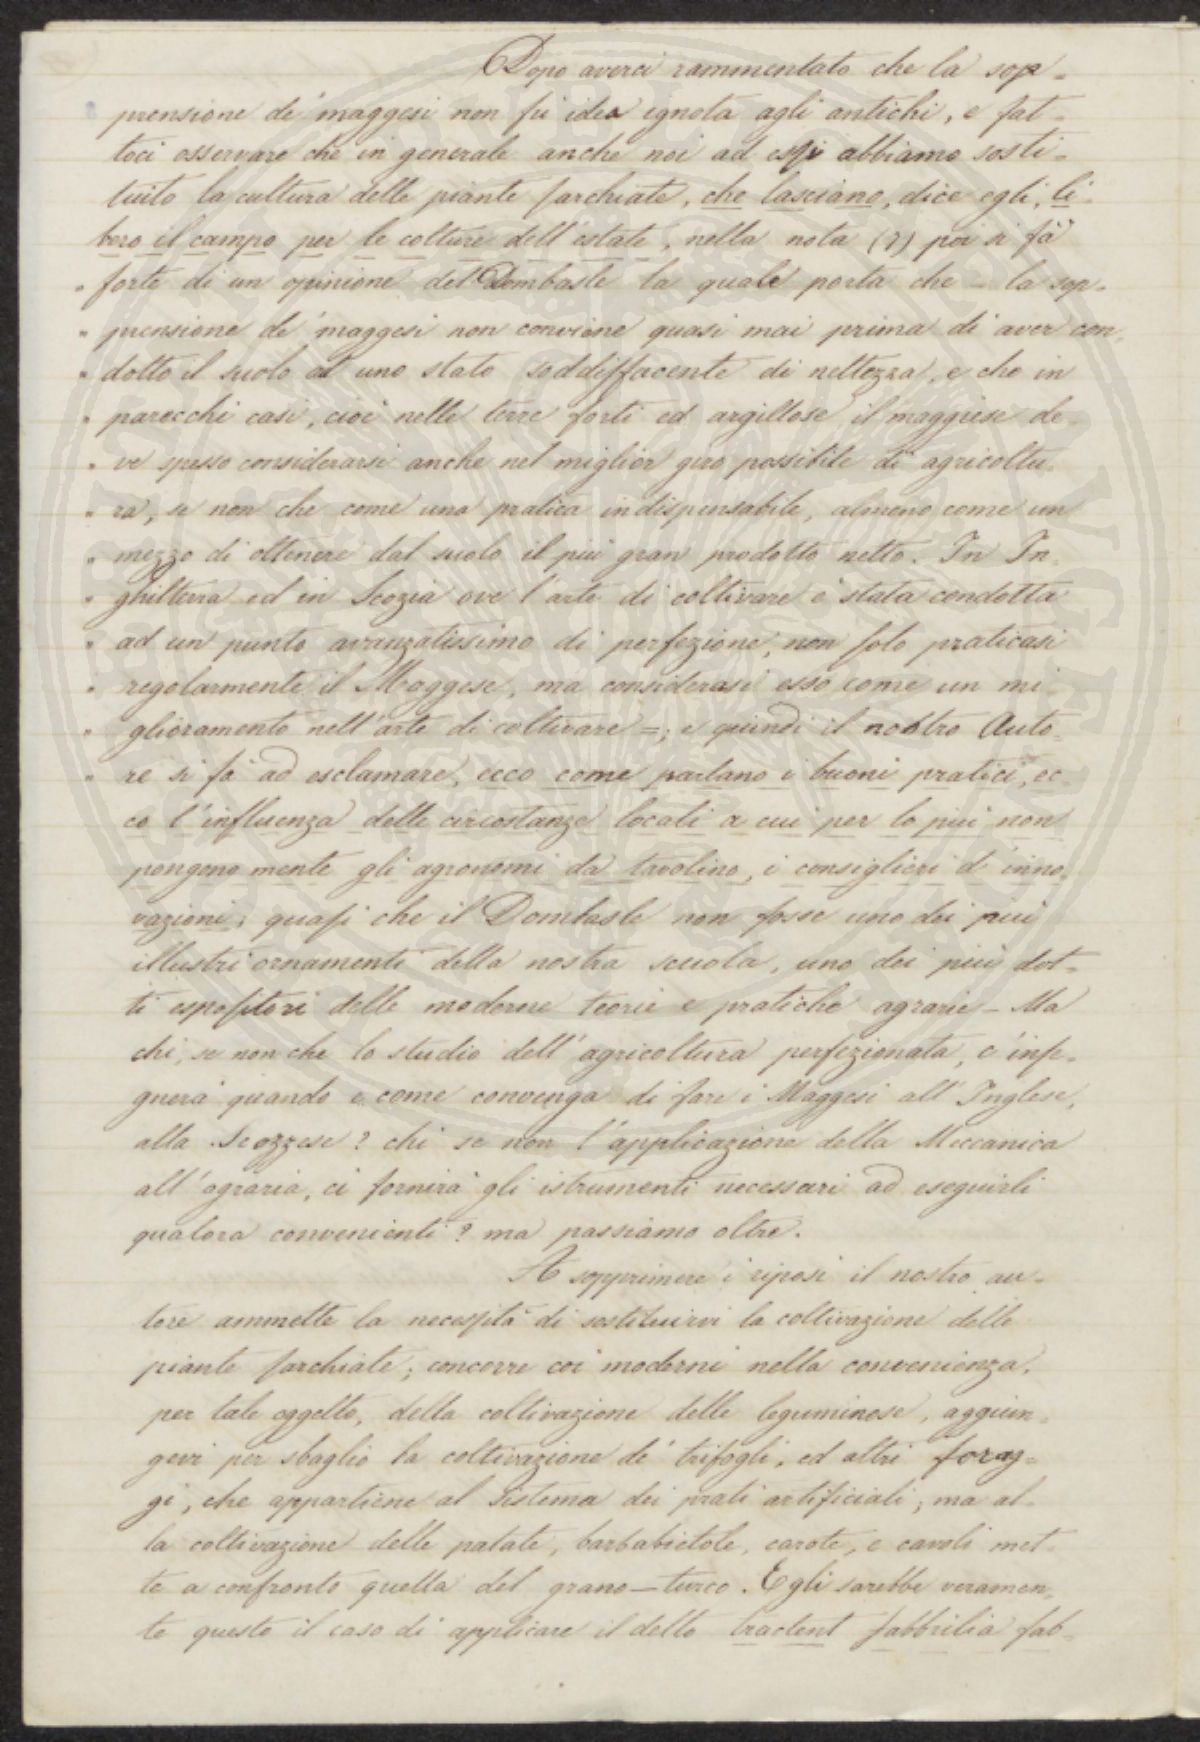 Dopo averci rammentato che la sop-
prensione de' maggesi non fu idea ignota agli antichi, e fat-
toci osservare che in generale anche noi ad essi abbiamo sosti-
tuito la cultura delle piante sarchiate, che lasciano, dice egli, li-
bero il campo per le colture dell'estate, nella nota (2) poi si fà
" forte di un opinione del Dombasle la quale porta che = la sop-
" prensione de' maggesi non conviene quasi mai prima di aver con-
" dotto il suolo ad uno stato soddisfacente di nettezza, e che in
" parecchi casi, cioè nelle terre forti ed argillose il maggese de-
" ve spesso considerarsi anche nel miglior giro possibile di agricoltu-
" ra, se non che come una pratica indispensabile, almeno come un
" mezzo di ottenere dal suolo il più gran prodotto netto. In In-
" ghilterra ed in Scozia ove l'arte di coltivare è stata condotta
" ad un punto avanzatissimo di perfezione, non solo praticasi
" regolarmente il Maggese, ma considerasi esso come un mi-
" glioramento nell'arte di coltivare =; e quindi il nostro Auto-
" re si fà ad esclamare, ecco come parlano i buoni pratici, ec-
co l'influenza delle circostanze locali a cui per lo più non
pongono mente gli agronomi da tavolino, i consiglieri d'inno-
vazioni; quasi che il Dombasle non fosse uno dei più
illustri ornamenti della nostra scuola, uno dei più dot-
ti espositori delle moderne teorie e pratiche agrarie - Ma
chi, se non che lo studio dell'agricoltura perfezionata, c'inse-
gnerà quando e come convenga di fare i Maggesi all'Inglese,
alla Scozzese? chi se non l'applicazione della Meccanica
all'agraria, ci fornirà gli istrumenti necessari ad eseguirli
qualora convenienti? ma passiamo oltre.
A sopprimere i riposi il nostro au-
tore ammette la necessità di sostituirvi la coltivazione delle
piante sarchiate; concorre coi moderni nella convenienza,
per tale oggetto, della coltivazione delle leguminose, aggiun-
gevi per sbaglio la coltivazione de' trifogli, ed altri forag-
gi, che appartiene al sistema dei prati artificiali; ma al-
la coltivazione delle patate, barbabietole, carote, e cavoli met-
te a confronto quella del grano-turco. Egli sarebbe veramen-
te questo il caso di applicare il detto tractent fabbrilia fab-